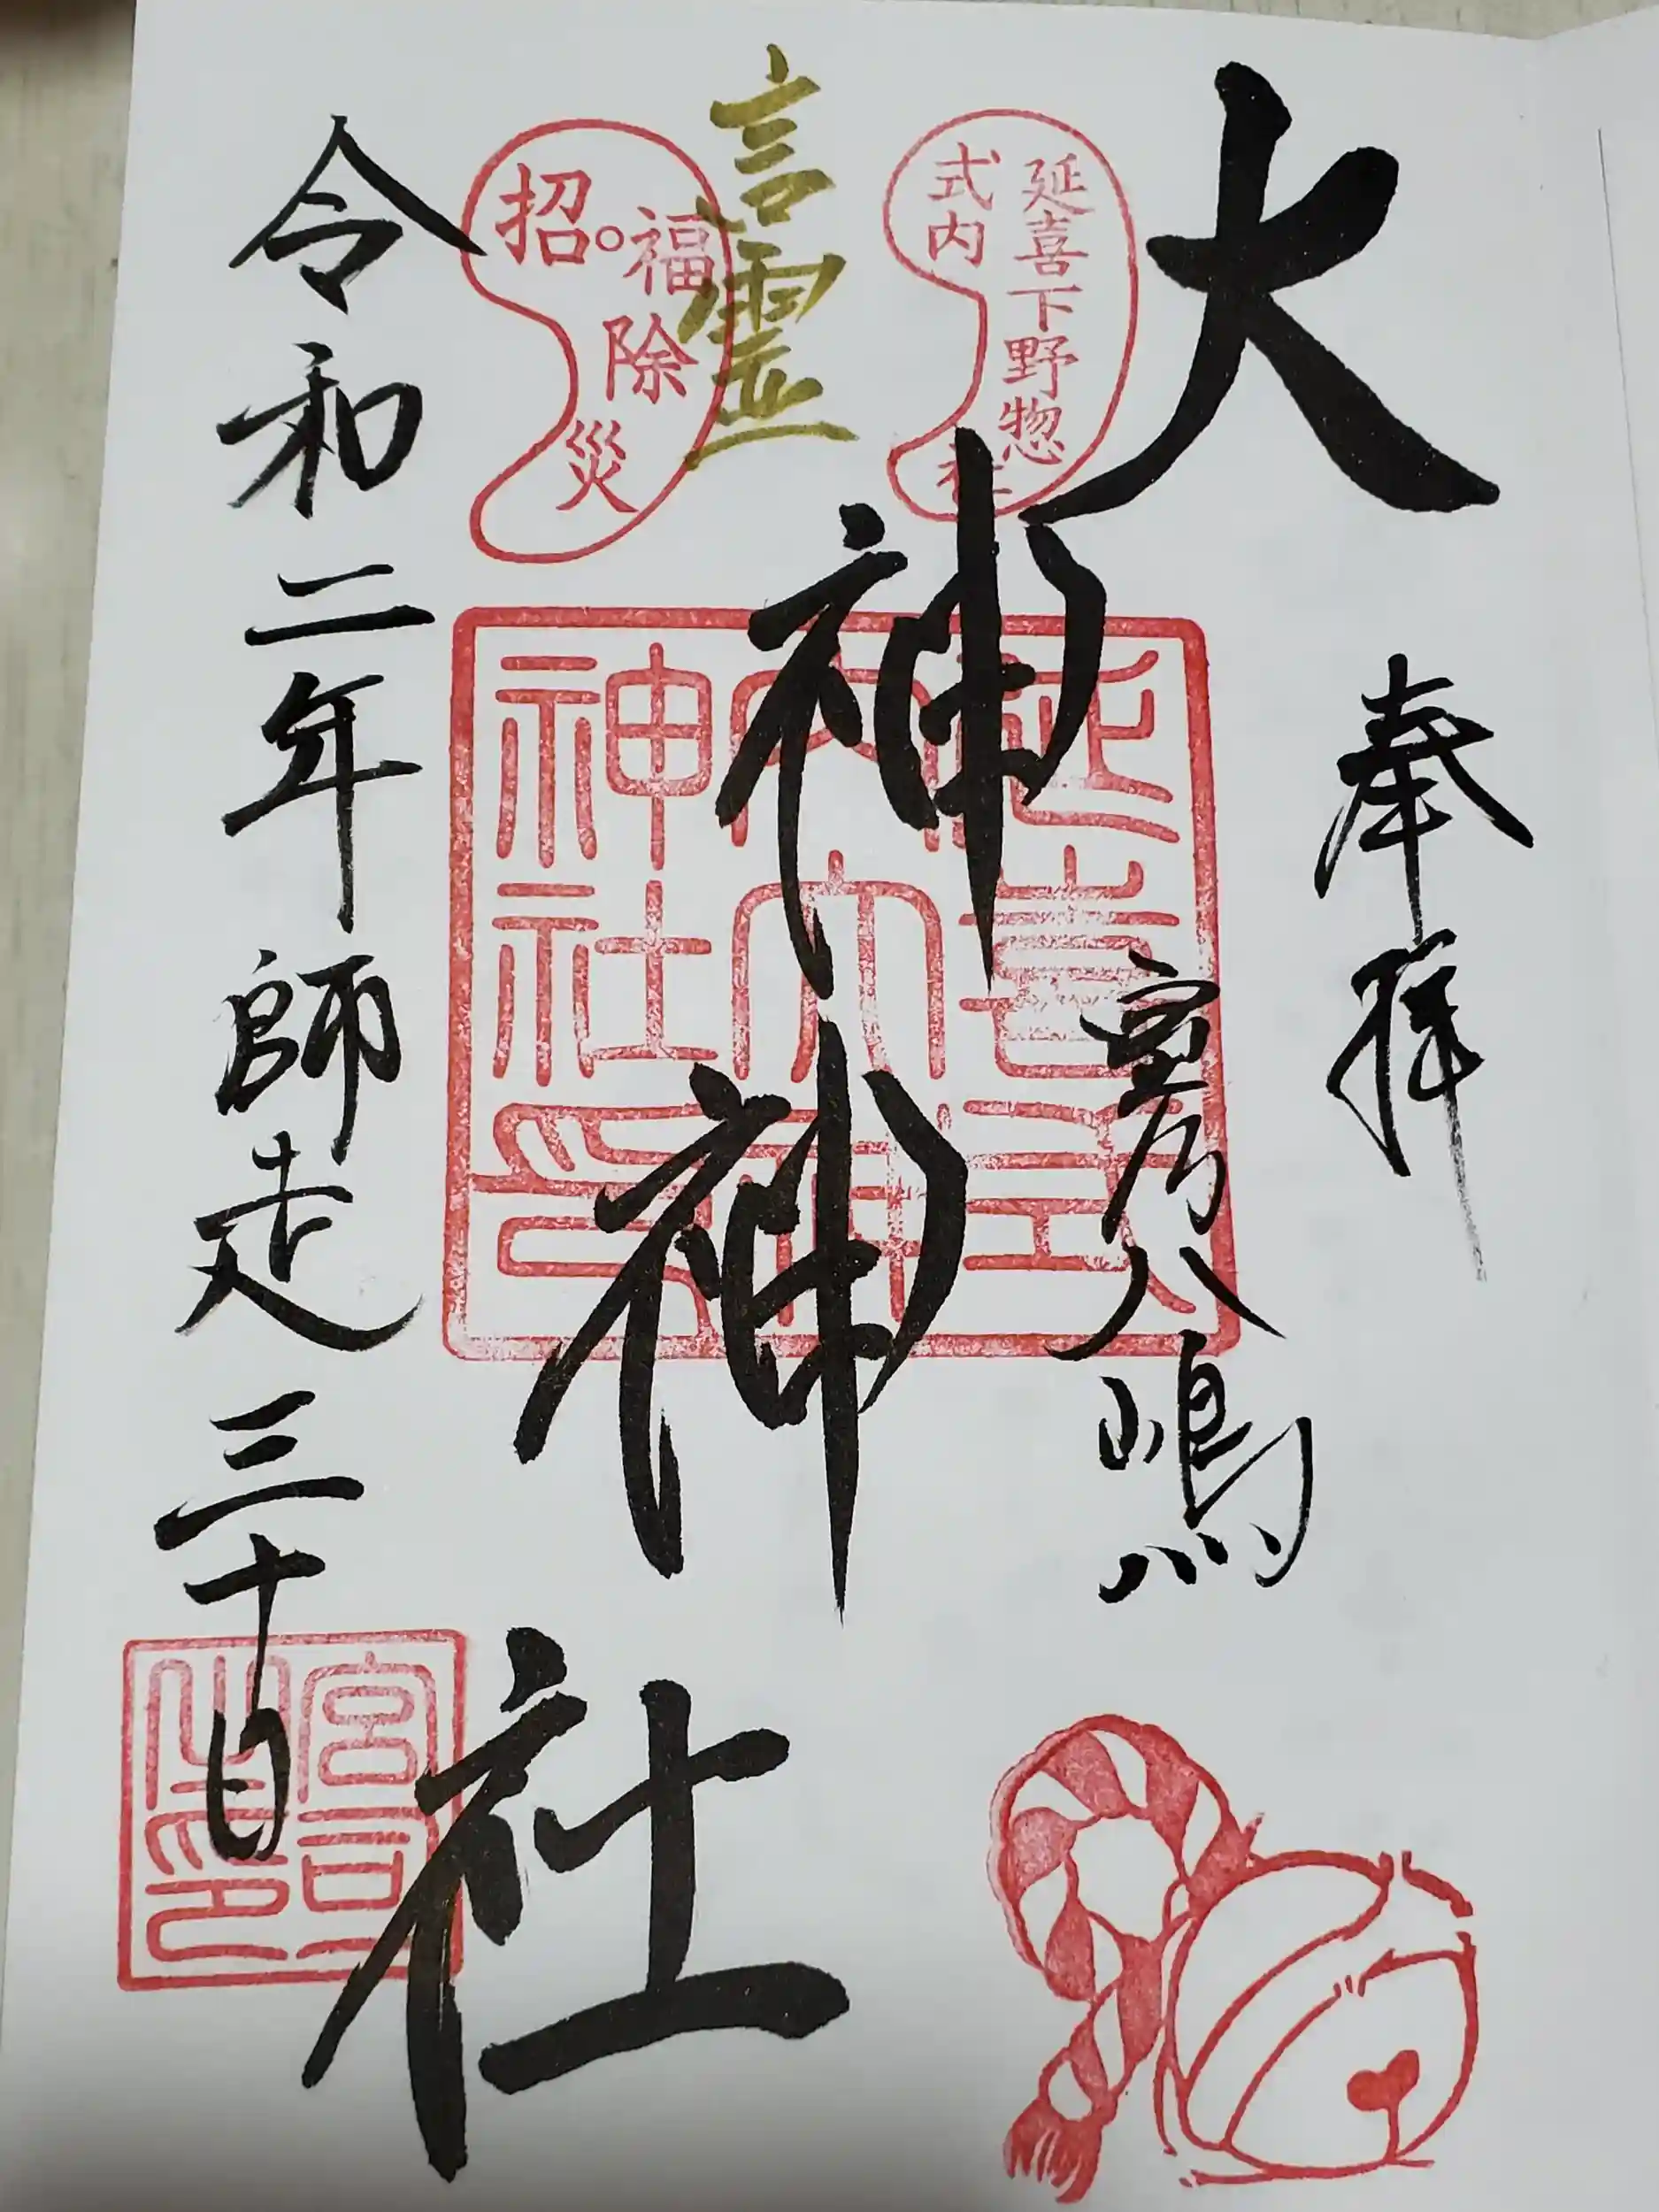 奉拝
大神神社
室乃八嶋
延喜下野惣社
式内
言霊
福除災
招
延喜式
内大神
神社印
令和二年師走三十日
宮司
之印